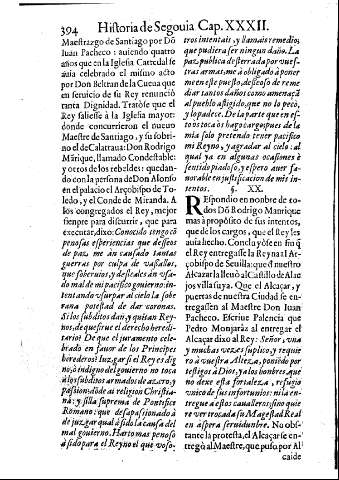 394 Historia de Segouia Cap. XXXII.
Maestrazgo de Santiago por Dõ
Iuan Pacheco: auiendo quatro
años que en la Iglesia Catredal se
auia celebrado el mismo acto
por Don Beltran de la Cueua que
en seruicio de su Rey renunció
tanta Dignidad. Tratòse que el
Rey saliesse à la Iglesia mayor:
donde concurrieron el nueuo
Maestre de Santiago, y su sobri-
no el de Calatraua: Don Rodrigo
Mãrique, llamado Condestable:
y otros de los rebeldes: quedan-
do con la persona de Don Alonso
en el palacio el Arçobispo de To-
ledo, y el Conde de Miranda. A
los congregados el Rey, mejor
siempre para discurrir, que para
executar, dixo: Conocido tengo cõ
penosas esperiencias que desseos
de paz, me an causado tantas
guerras por culpa de vassallos,
que soberuios, y desleales an vsa-
do mal de mi pacifico gouierno: in-
tentando vsurpar al cielo la sobe-
rana potestad de dar coronas.
Si los subditos dan, y quitan Rey-
nos, de que sirue el derecho heredi-
tario? De que el juramento cele-
brado en fauor de los Principes
herederos? Iuzgar si el Rey es dig-
no, ò indigno del gouierno no toca
à los subditos armados de azero, y
passion: dõde ai religion Christia-
na; y silla suprema de Pontifice
Romano: que desapassionado à
de juzgar qual à sido la causa del
mal gouierno. Harto mas penoso
à sido para el Reyno el que voso-
tros intentais, y llamais remedio,
que pudiera ser ningun daño. La
paz, publica desterrada por vues-
tras armas, me à obligado à poner
me en este puesto, desseoso de reme
diar tantos daños como amenaçã
al pueblo afligido, que no los pecò,
y los padece. De la parte que en es-
tos toca os hago cargo, pues de la
mia solo pretendo tener pacifico
mi Reyno, y agradar al cielo: al
qual ya en algunas ocasiones è
sentido piadoso, y espero auer fa-
uorable en justificacion de mis in-
tentos. §. XX.
REspondio en nonbre de to-
dos Dõ Rodrigo Manrique
mas à proposito de sus intentos,
que de los cargos, que el Rey les
auia hecho. Concluyòse en fin q̃
el Rey entregasse la Reyna al Ar-
çobispo de Seuilla: que dl nuestro
Alcazar la lleuò al Castillo de Alae
jos villa suya. Que el Alcaçar, y
puertas de nuestra Ciudad se en-
tregassen al Maestre Don Iuan
Pacheco. Escriue Palencia que
Pedro Monjaràz al entregar el
Alcaçar dixo al Rey: Señor, vna
y muchas vezes suplico, y requie
ro à vuestra Alteza, poniẽdo por
testigos à Dios, y a los honbres, que
no dexe esta fortaleza, refugio
vnico de sus infortunios: ni la en-
tregue à estos caualleros; sino quie
re ver trocada su Magestad Real
en àspera seruidunbre. No obs-
tante la protesta, el Alcaçar se en-
tregò al Maestre, que puso por Al
caide